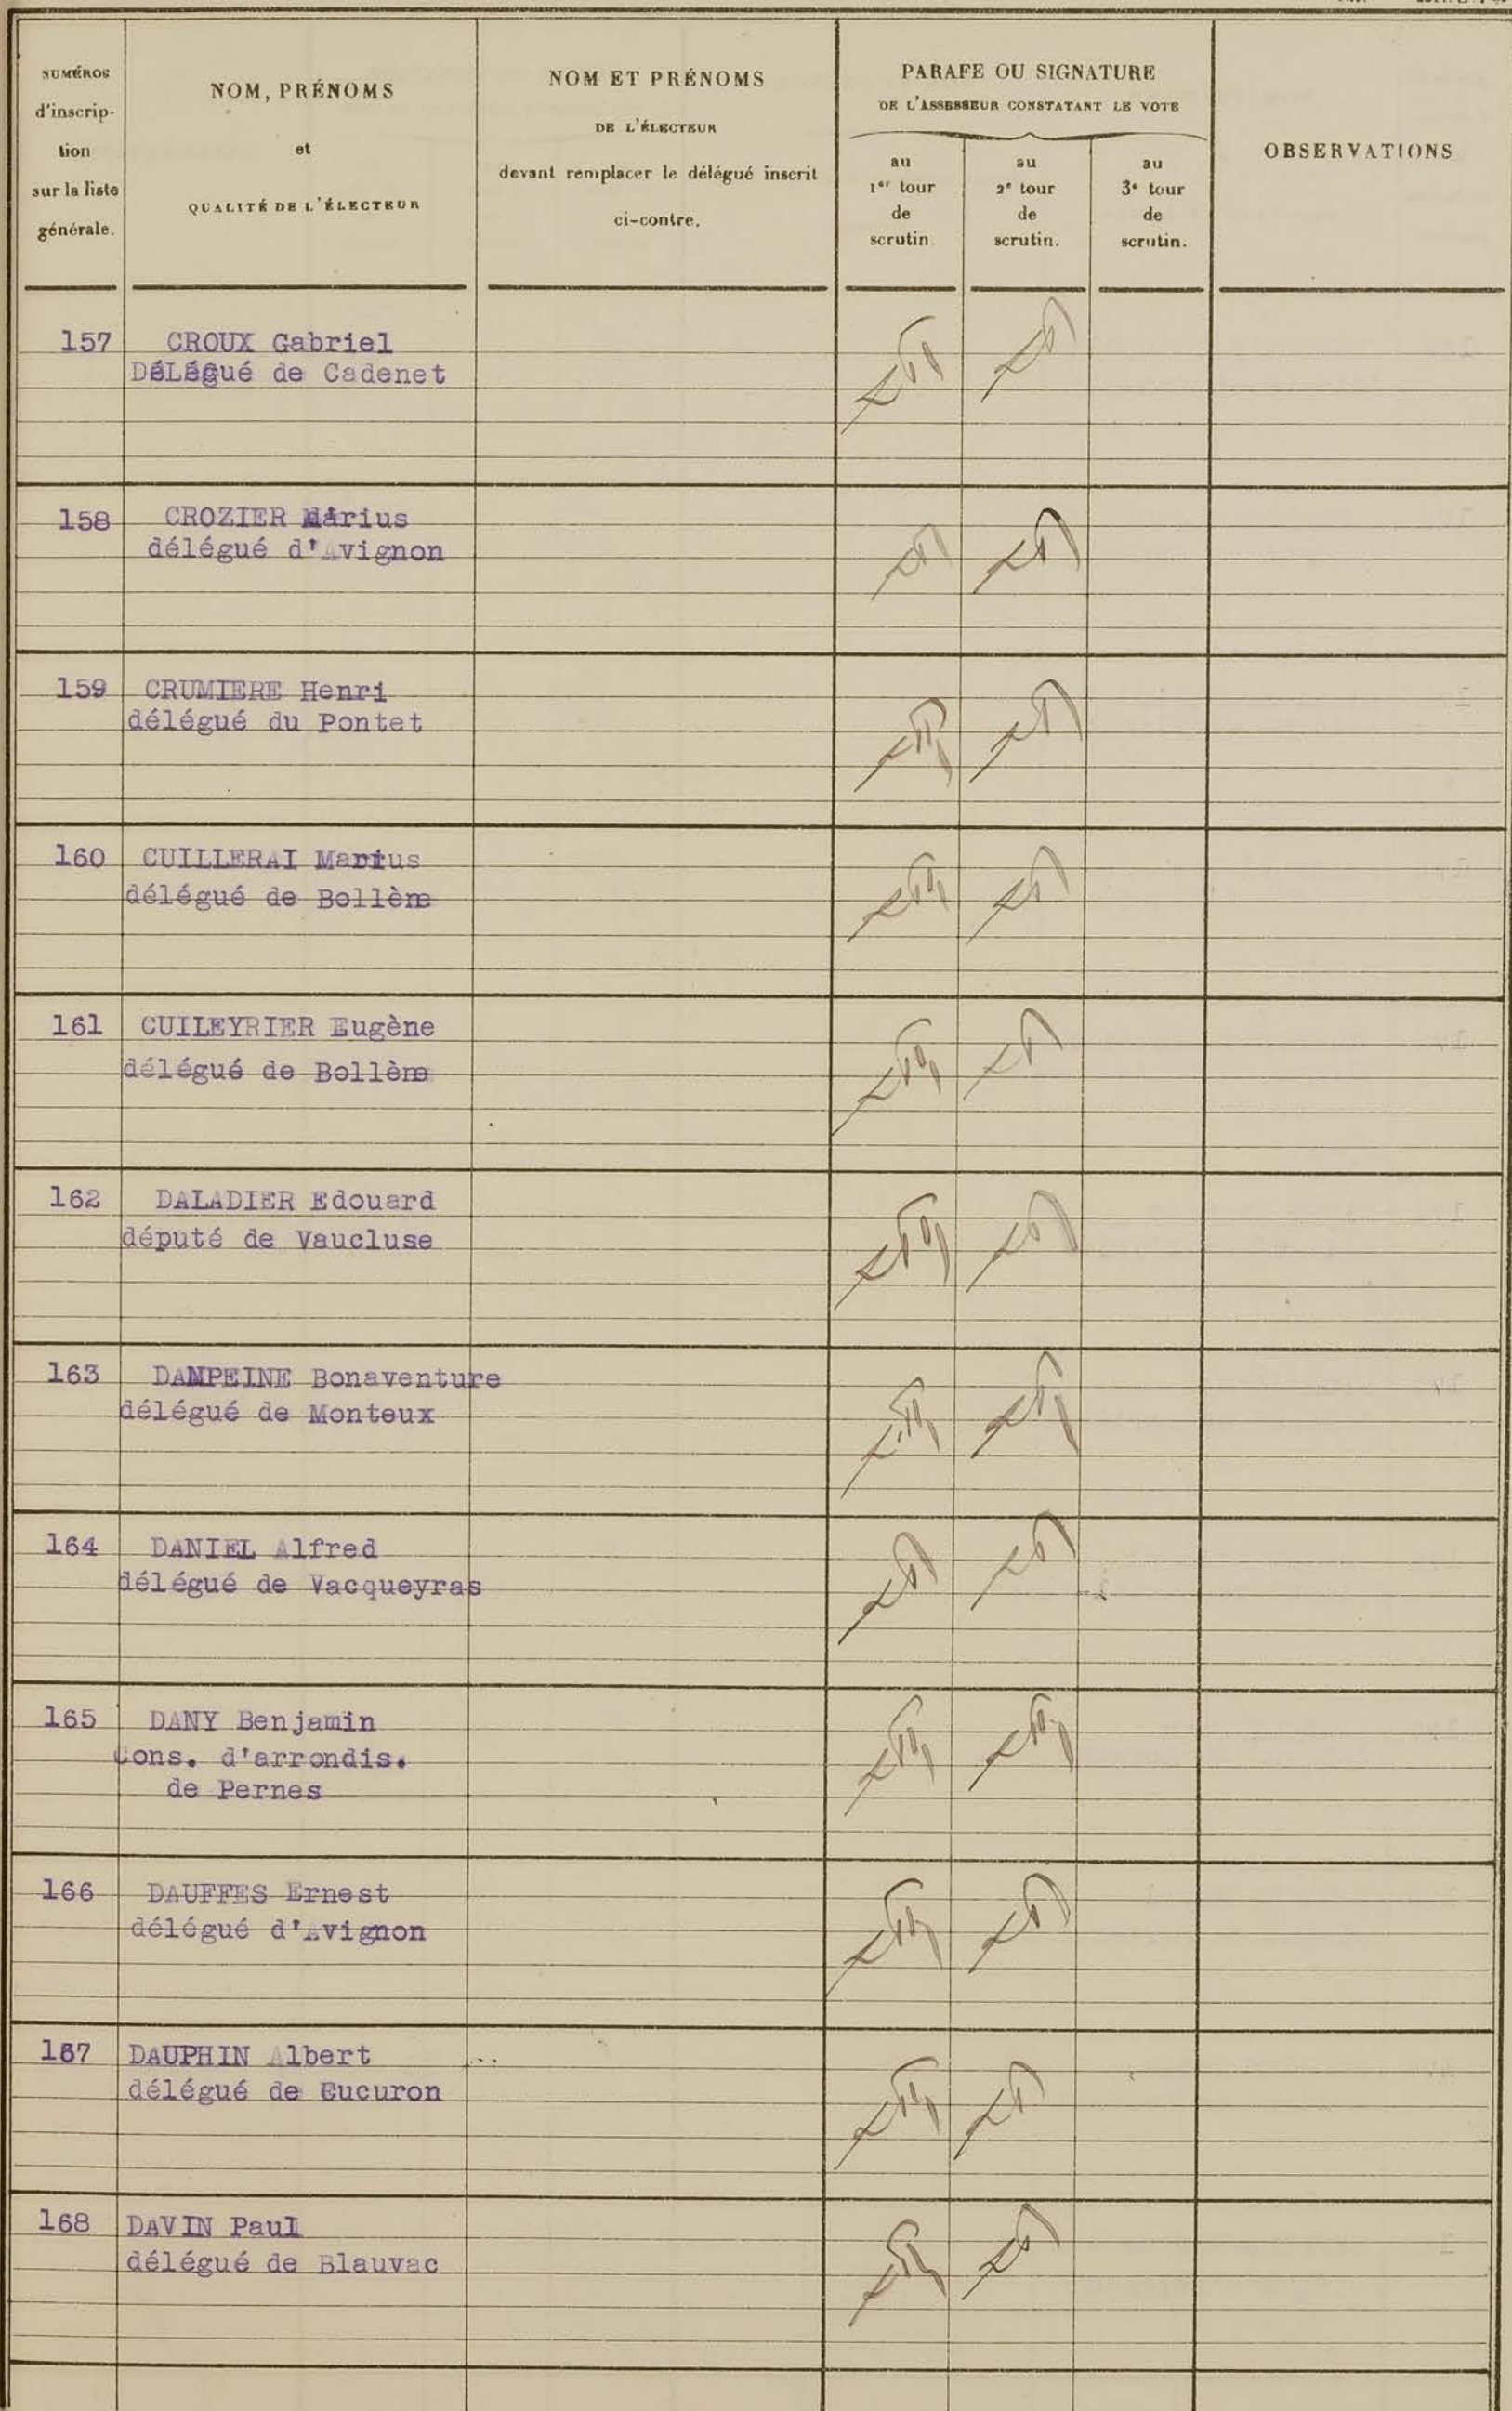 NUMÉROS
d'inscrip-
tion
sur la liste
générale.
NOM, PRÉNOMS
et
QUALITÉ DE L'ÉLECTEUR
NOM ET PRÉNOMS
DE L'ÉLECTEUR
devant remplacer le délégué inscrit
ci-contre.
PARAFE OU SIGNATURE
DE L'ASSESSEUR CONSTATANT LE VOTE
au
1er tour
de
scrutin.
au
2e tour
de
scrutin.
au
3e tour
de
scrutin.
OBSERVATIONS
157 CROUX Gabriel
DéLégué de Cadenet
158 CROZIER Marius
délégué d'Avignon
159 CRUMIERE Henri
délégué du Pontet
160 CUILLERAI Marius
délégué de Bollène
161 CUILEYRIER Eugène
délégué de Bollène
162 DALADIER Edouard
député de Vaucluse
163 DAMPEINE Bonaventure
délégué de Monteux
164 DANIEL Alfred
délégué de Vacqueyras
165 DANY Benjamin
Cons. d'arrondis.
de Pernes
166 DAUFFES Ernest
délégué d'Avignon
167 DAUPHIN Albert
délégué de Cucuron
168 DAVIN Paul
délégué de Blauvac